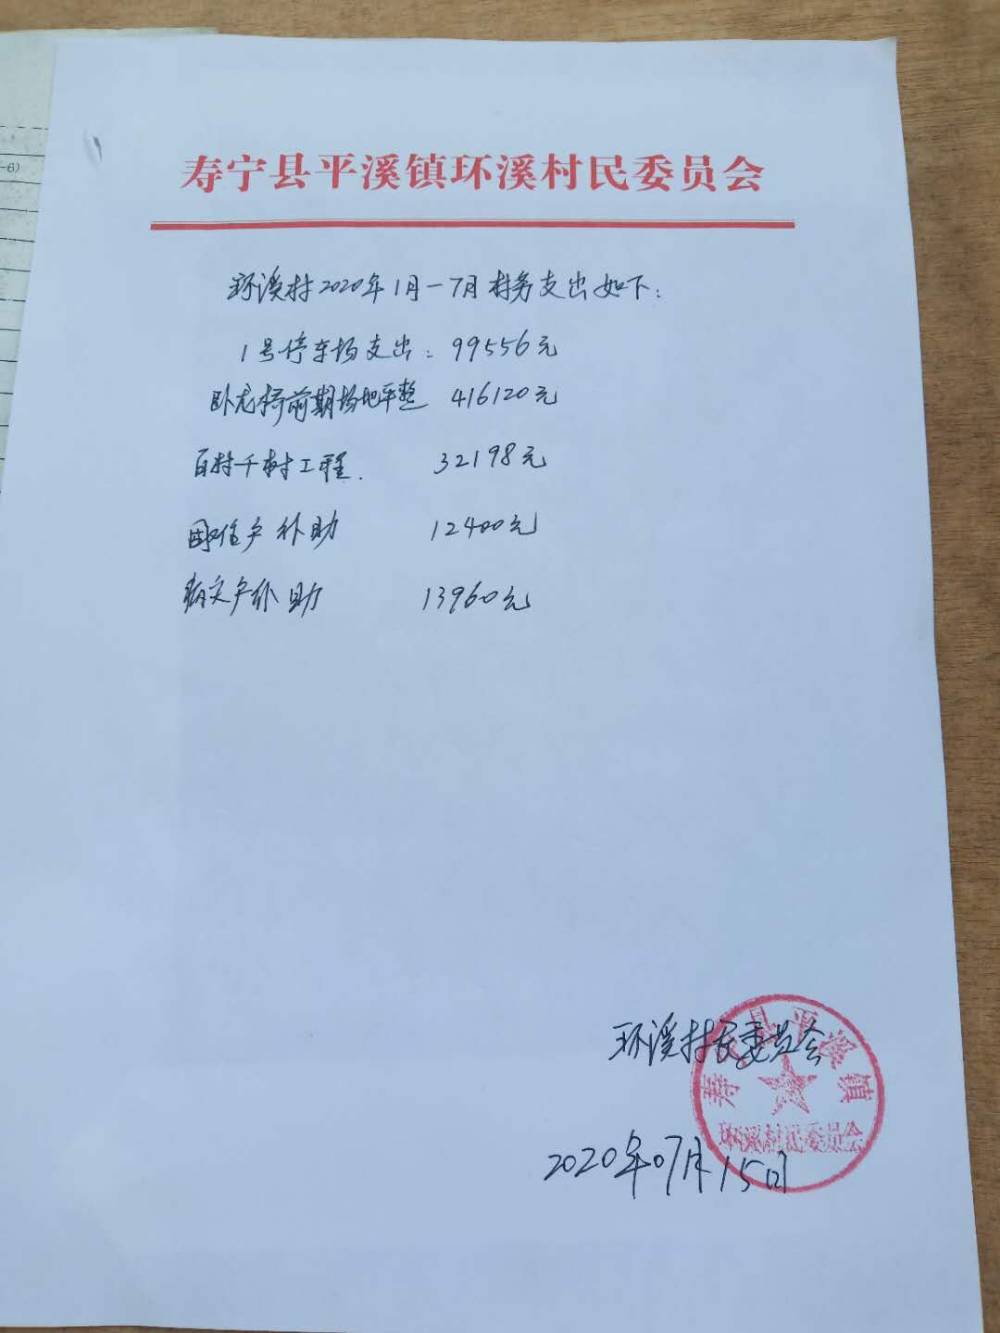 -6)
寿宁县平溪镇环溪村民委员会
环溪村2020年1月-7月村务支出如下:
1号停车场支出: 99556元
卧龙桥前期场地平整 416120元
百村千树工程. 32198元
户补助 12400元
户补助 13960元
环溪村民委员会
寿宁县平溪镇
环溪村民委员会
2020年07月15日